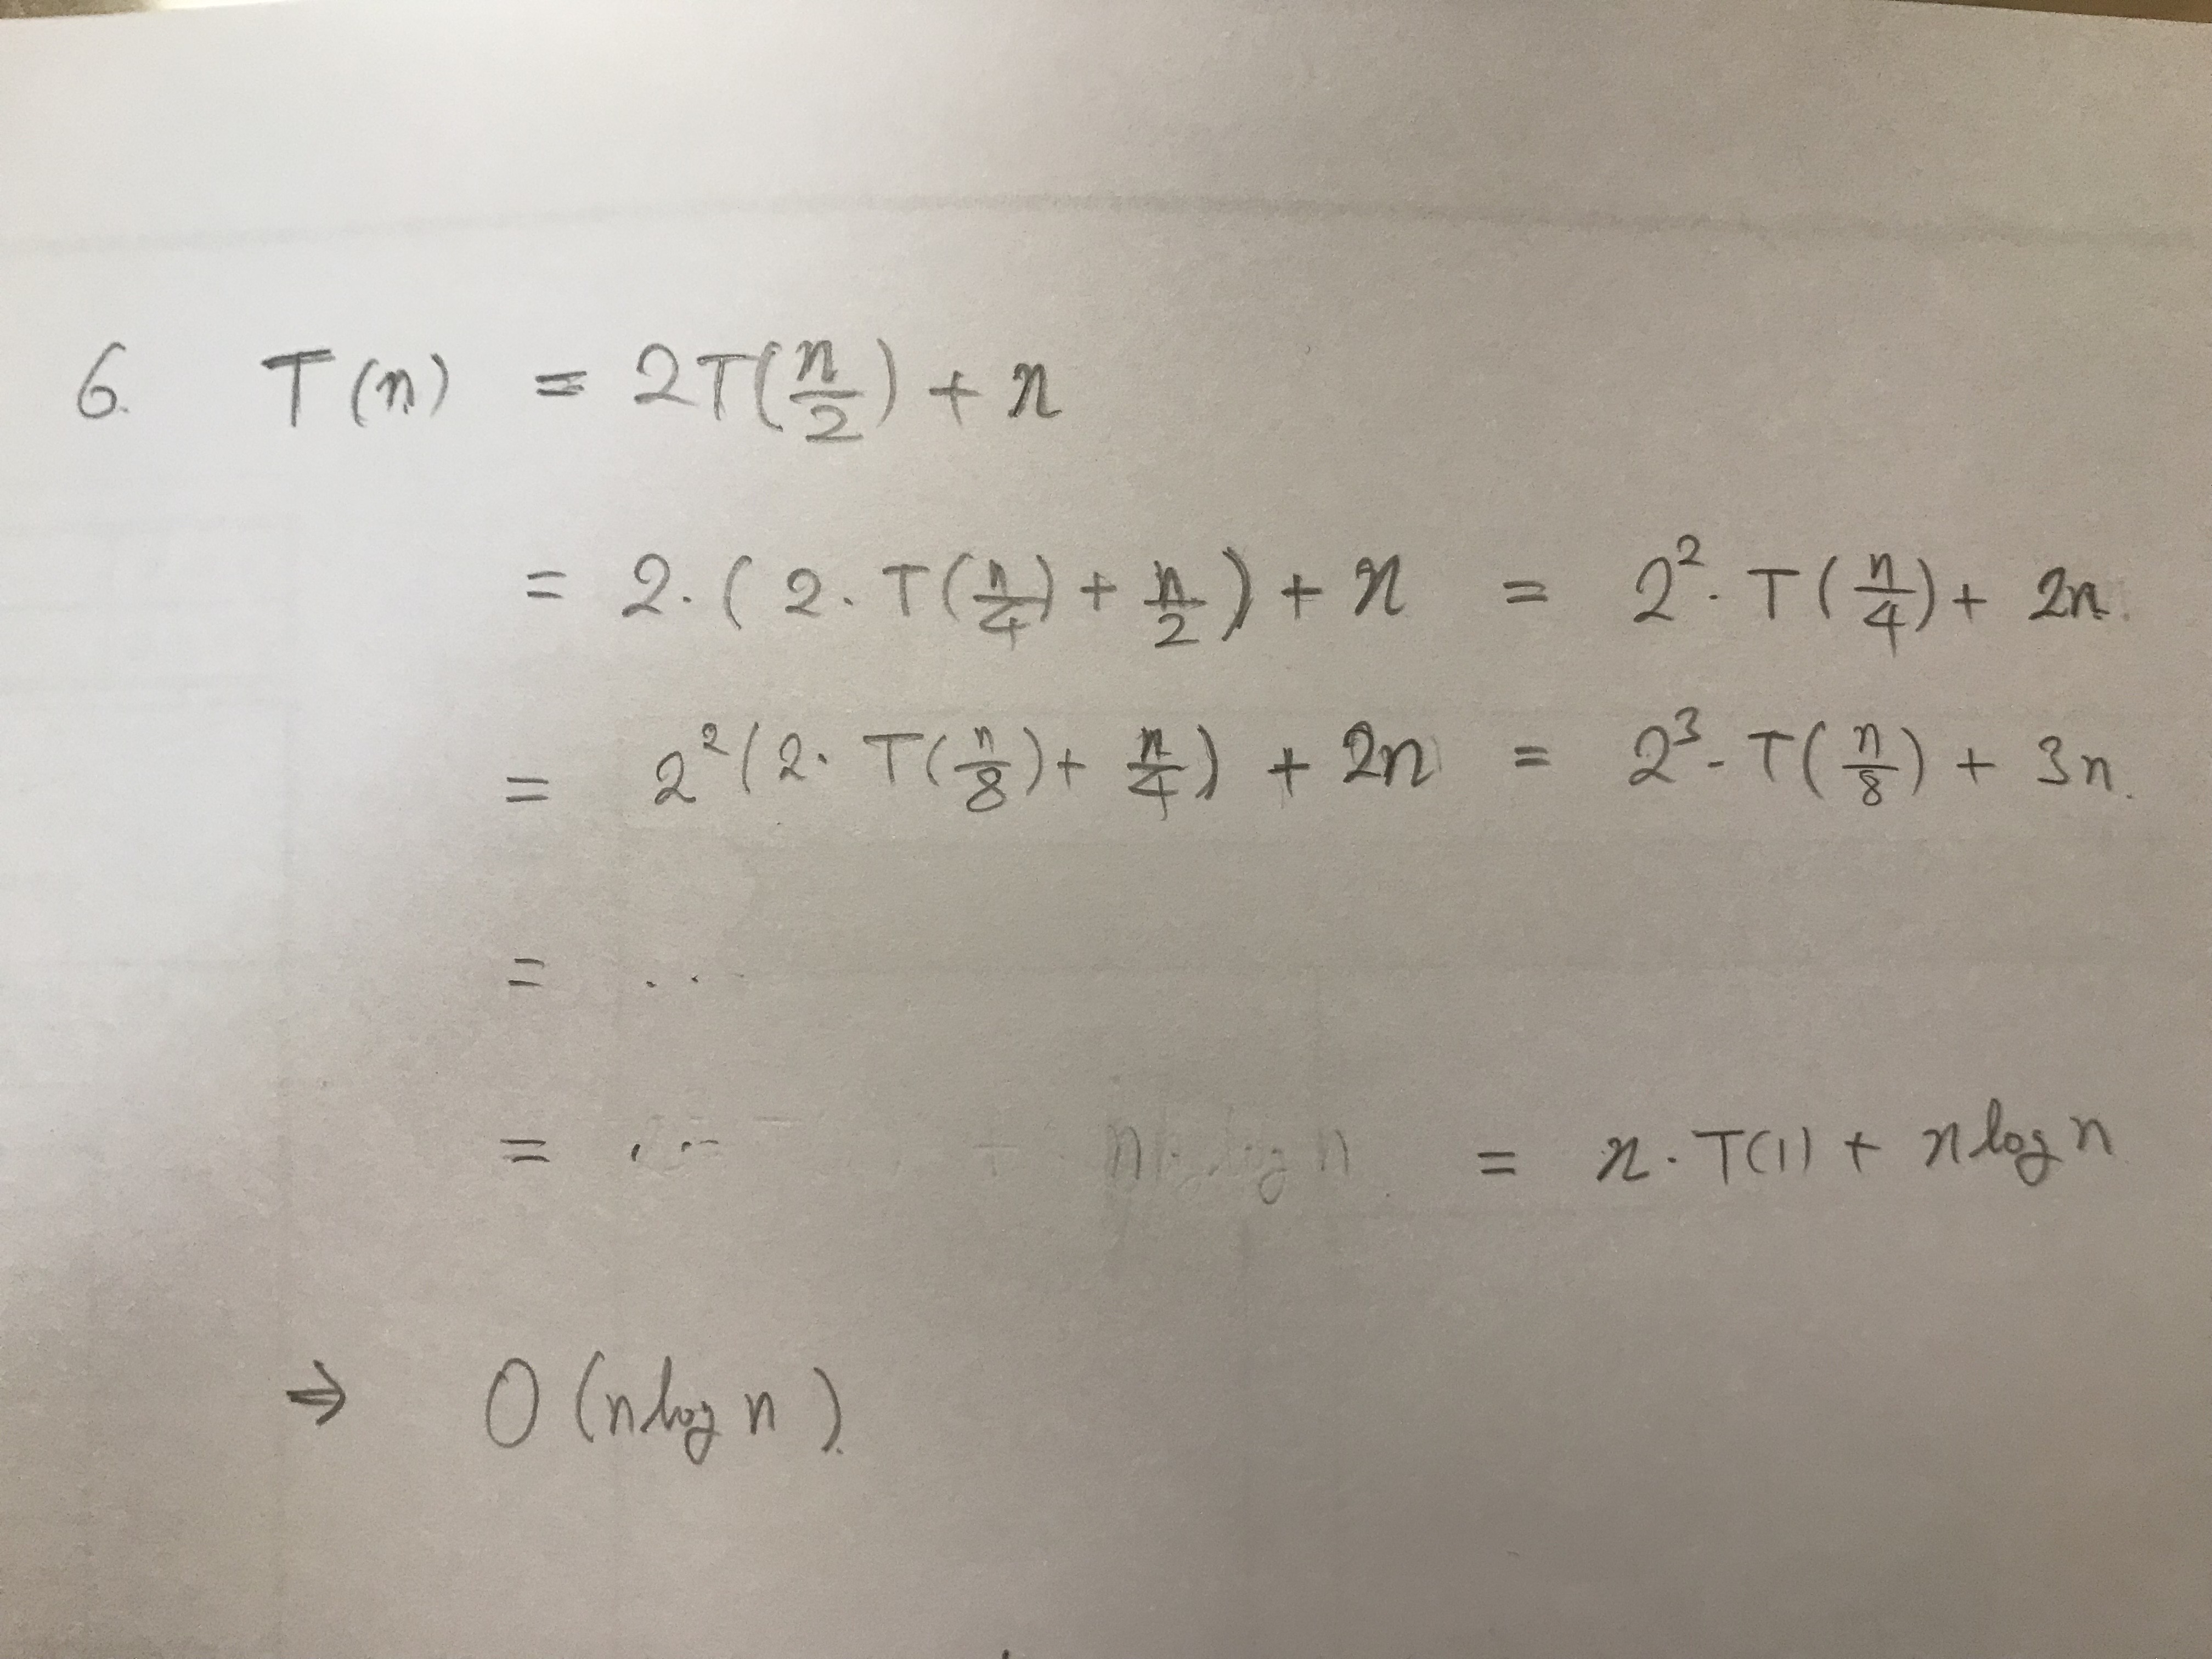 6. T(n) = 2T(n/2) + n
= 2·(2·T(n/4) + n/2) + n = 2²·T(n/4) + 2n.
= 2²(2·T(n/8) + n/4) + 2n = 2³·T(n/8) + 3n.
= ..
= ... = n·T(1) + n log n
⇒ O(n log n).